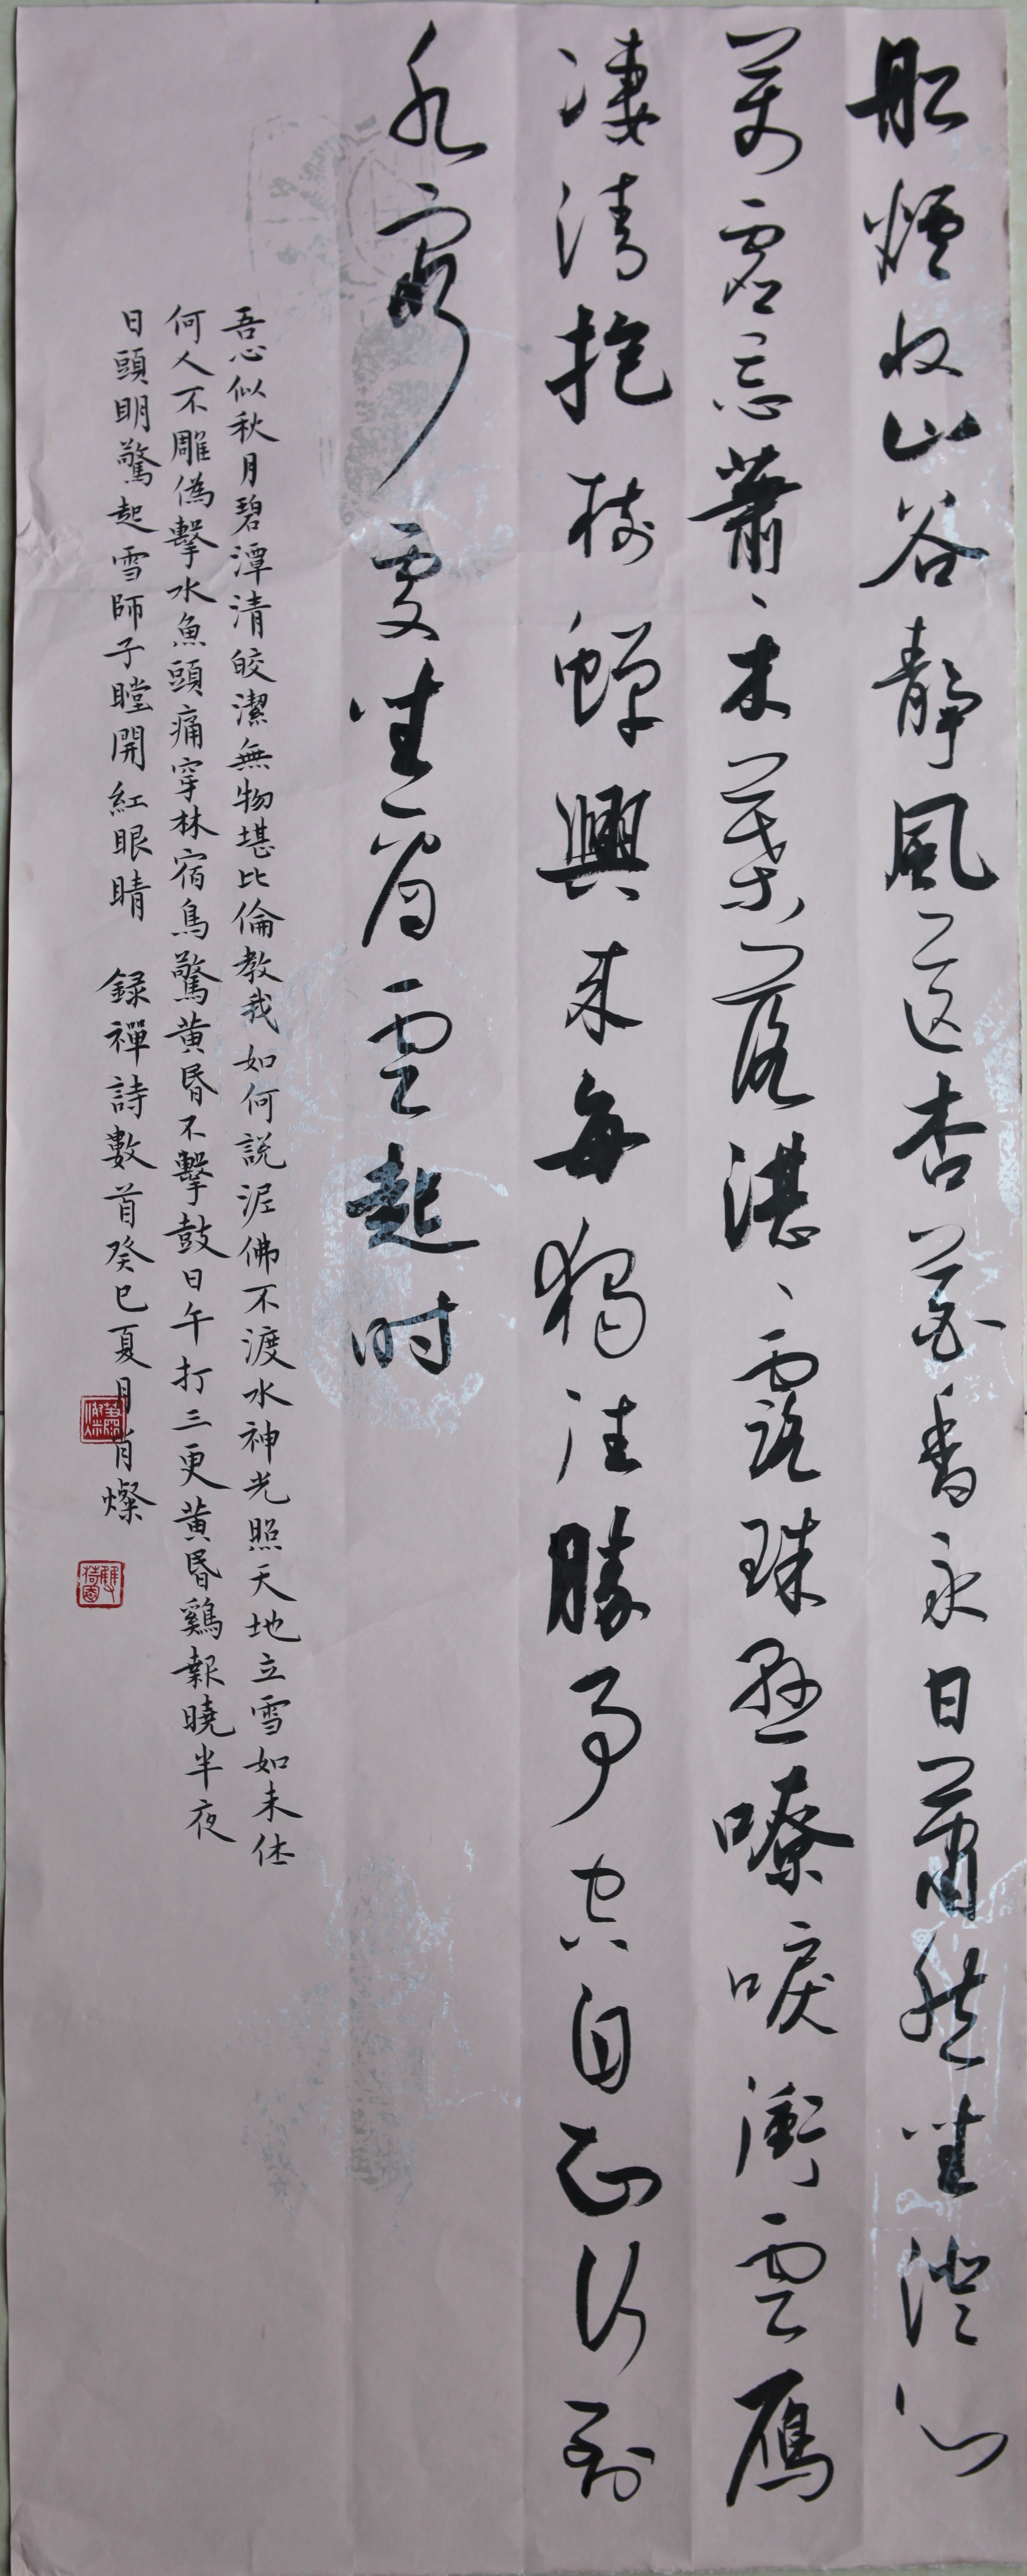 船煙收山谷靜風送杏花香永日蕭然坐澄心
萬慮忘蕭、木葉落湛、露珠懸嘹唳衝雲雁
凄清抱樹蟬興來每獨往勝事空自知行到
水窮處坐看雲起时
吾心似秋月碧潭清皎潔無物堪比倫教我如何説泥佛不渡水神光照天地立雪如未休
何人不雕偽擊水魚頭痛穿林宿鳥驚黄昏不擊鼓日午打三更黄昏鷄報曉半夜
日頭明驚起雪師子瞠開紅眼睛 録禪詩數首癸巳夏月肖燦